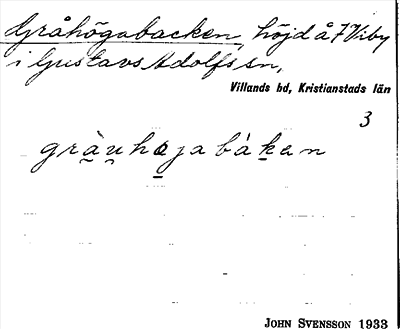 Gråhögabacken, höjd å 7 Viby
i Gustavs Adolfs sn,
Villands hd, Kristianstads län
3
gràu̯højabàkan
JOHN SVENSSON 1933